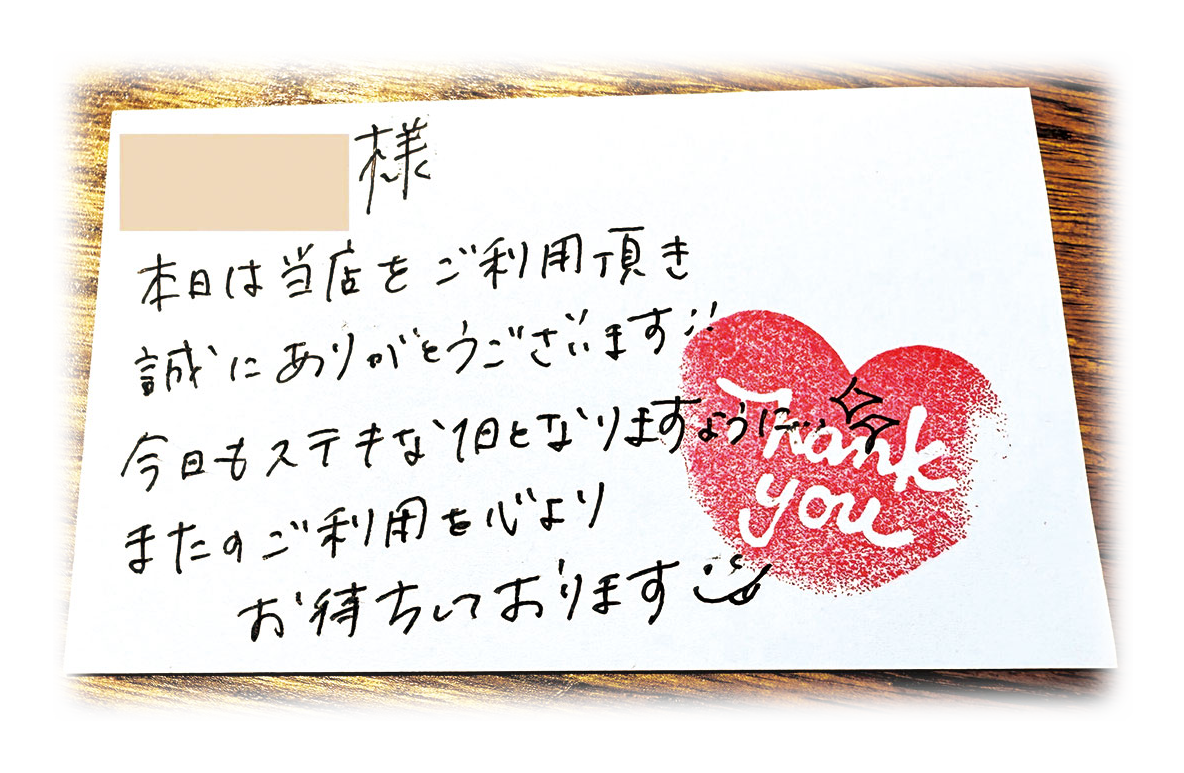 様
本日は当店をご利用頂き
誠にありがとうございます!!
今日もステキな1日となりますように…
またのご利用を心より
お待ちしております
Thank
you